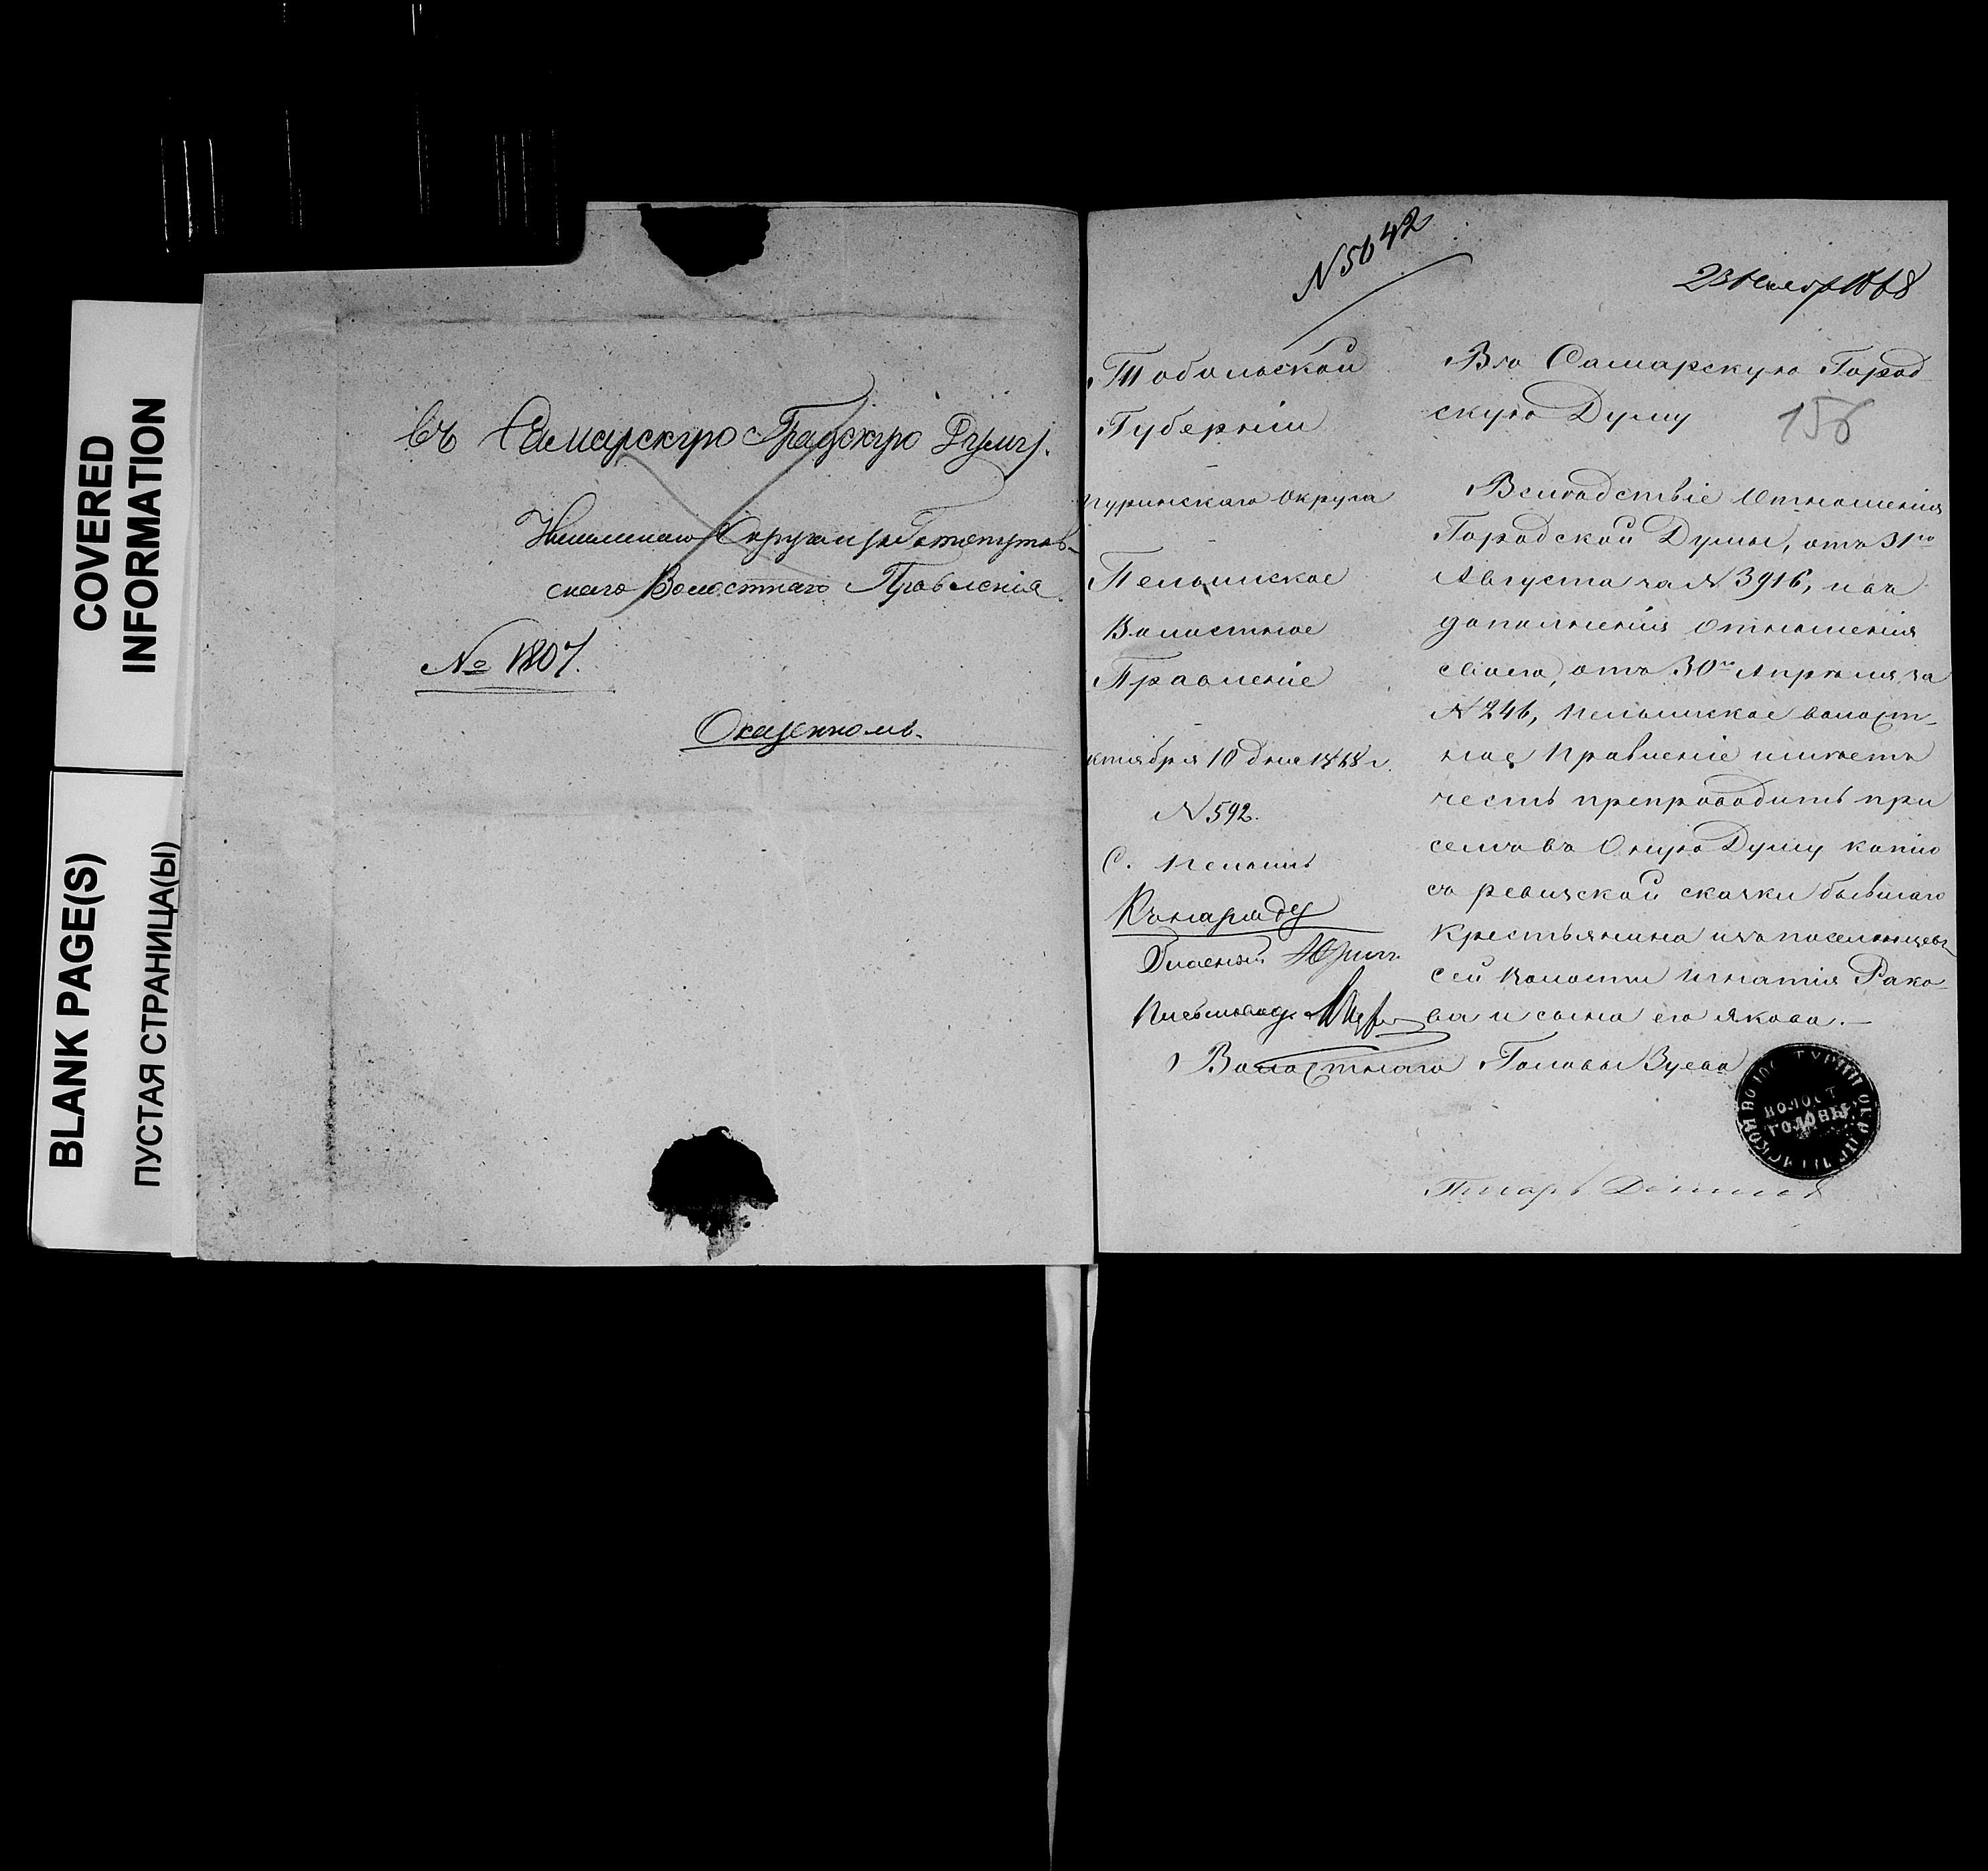 COVERED
INFORMATION
BLANK PAGE(S)
ПУСТАЯ СТРАНИЦА(Ы)
въ Самарскую Градскую Думу.
Округа
скаго Волостнаго Правленія.
№ 1807.
О казенномъ.
N 5642
1868
Тобольской
Губерніи
Туринскаго Округа
Пелымское
Волостное
Правленіе
ктября 10 дня 1868 г.
N 592.
С. Пелымъ
Въ Самарскую Город
скую Думу
156
Вслѣдствіе Отношенія
Городской Думы, отъ 31го
Августа за N 3916, и въ
дополненія отношенія
своего, отъ 30го Апрѣля за
N 246, Пелымское волост-
ное Правленіе имѣетъ
честь препроводить при
семъ въ Оную Думу копію
съ ревизской сказки бывшаго
Крестьянина изъ поселенцевъ
сей волости Игнатія Рако-
ва и сына его Якова.—
Волостнаго Головы Зуева
ВОЛОСТ
ГОЛОВЫ
Писарь